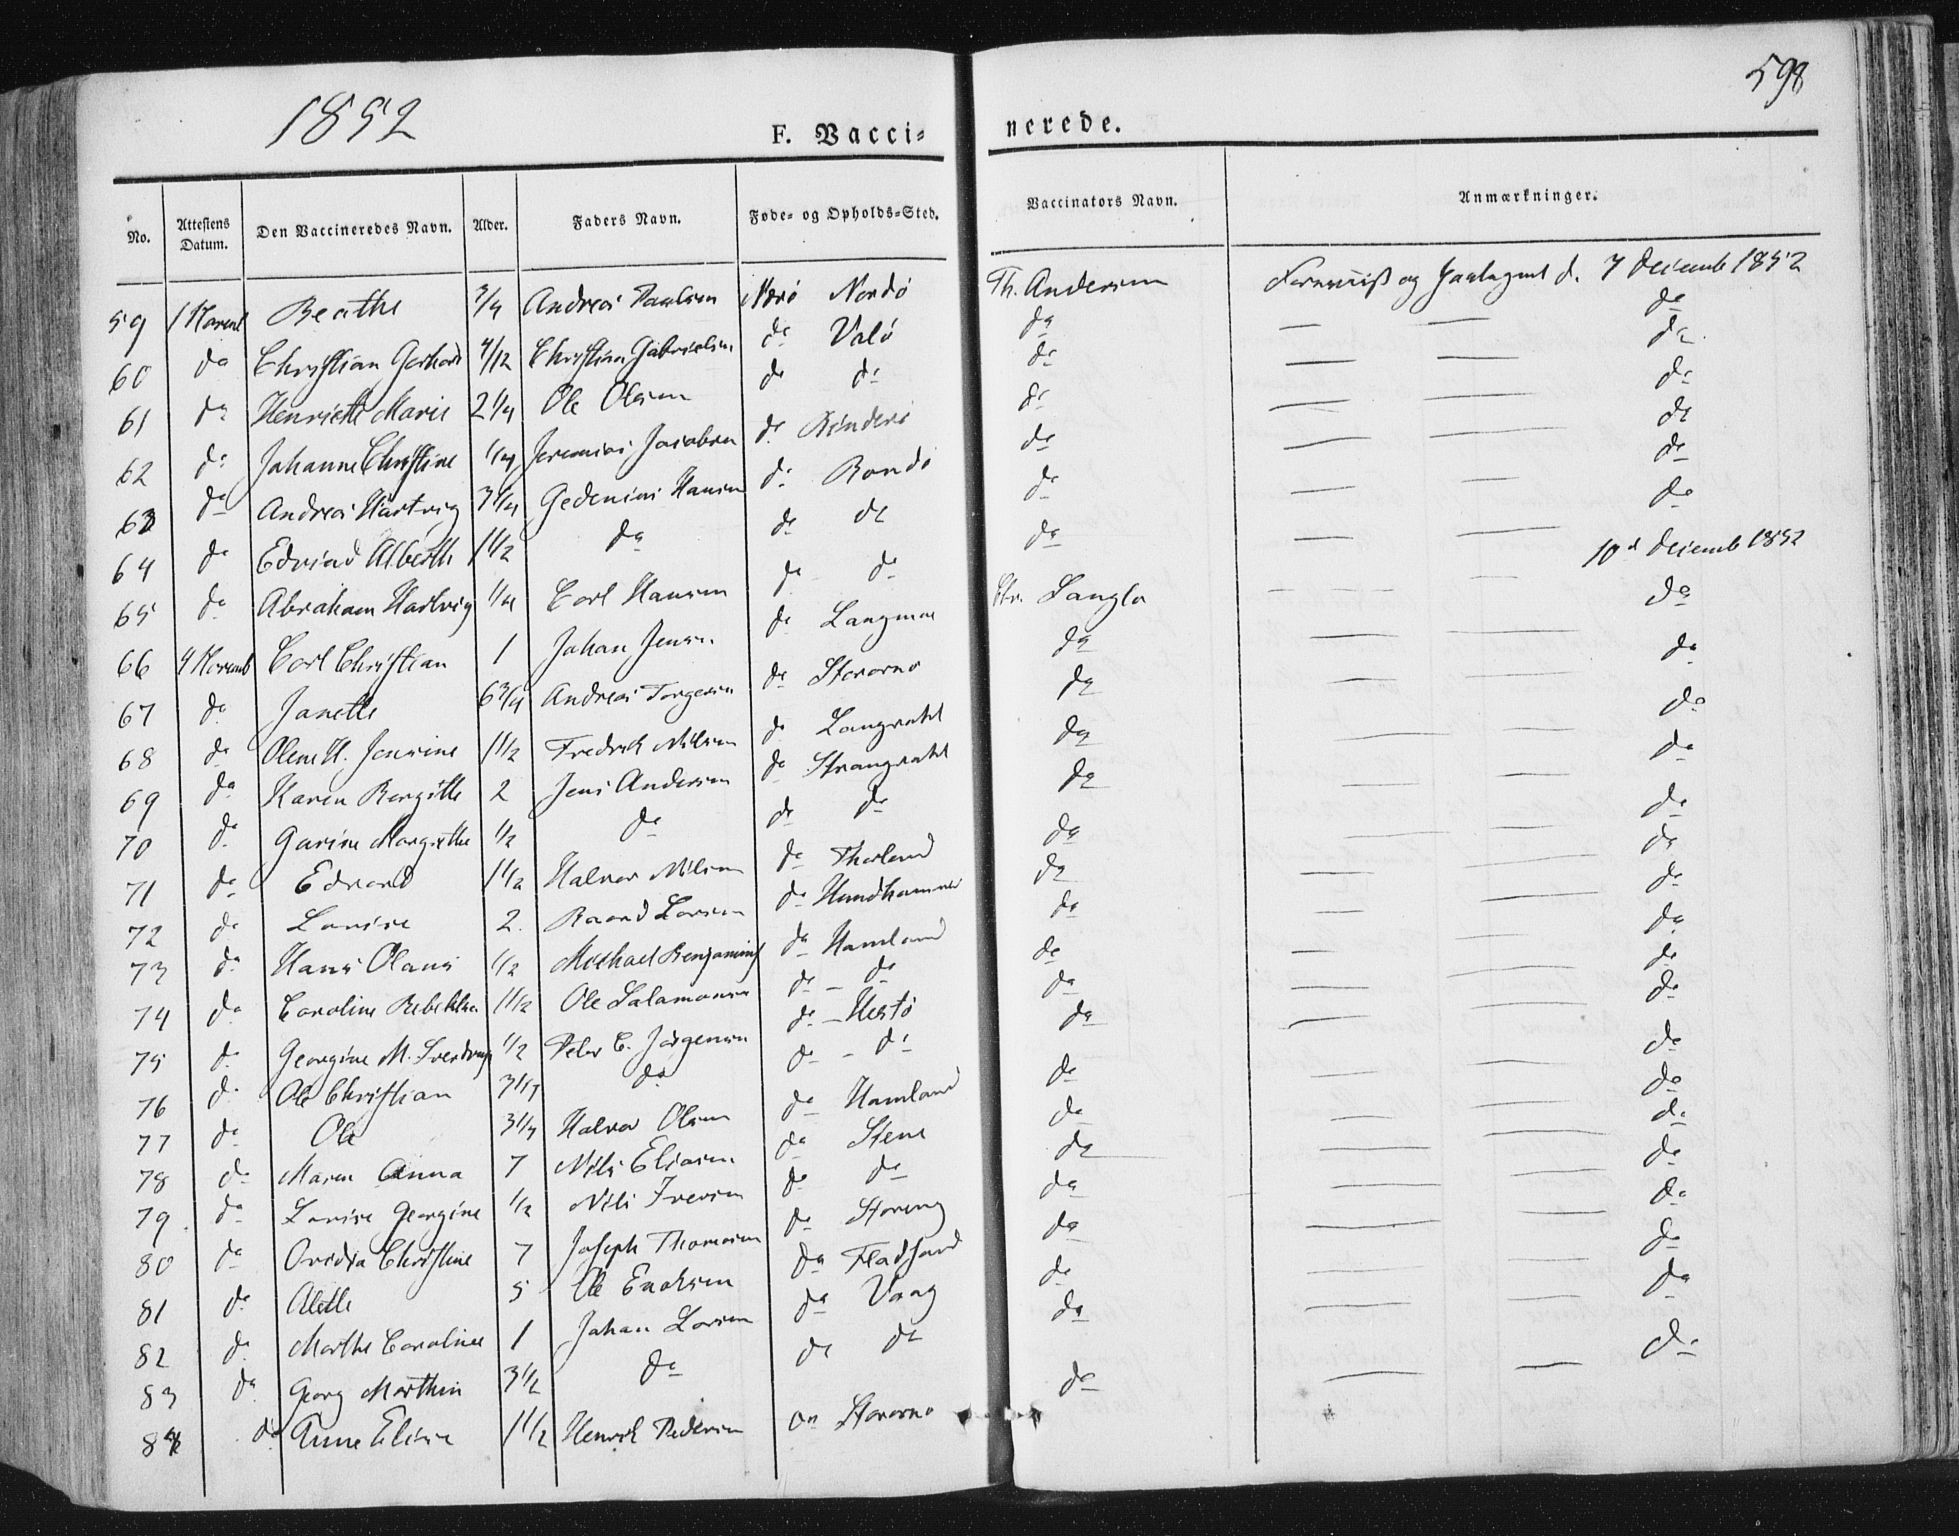 1852
598
F. Vacci= nerede.
No. Attestens Datum. Den Vaccineredes Navn. Alder. Faders Navn. Føde- og Opholds-Sted. Vaccinators Navn. Anmærkninger.
59 1 Novemb Beathe 3/4 Andreas Paulsen Nærø Nordø Th. Andersen d. 7 Decemb 1852
60 do Christian Gerhard 4/12 Christian Gabrielsen do Valø do — — do
61 do Henriette Marie 2 1/4 Ole Olsen do do do — — do
62 do Johanne Christine 1/4 Jeremias Jacobsen do Binderø do — — do
63 do Andreas Hartvig 3 1/4 Gedenius Hansen do Bondø do — — do
64 do Edvard Alberth 1 1/2 do do do do — — do
65 do Abraham Hartvig 1/4 Carl Hansen do do do — — do
66 4 Novemb Carl Christian 1 Johan Jensen do Langmoe Chr. Langlo — — 10d Decemb 1852
67 do Janette 6 3/4 Andreas Torgersen do Storørnø do — — do
68 do Olene H. Jensine 1 1/2 Fredrik Nilsen do Langvakl do — — do
69 do Karen Bergitte 2 Jens Andersen do Strangvakl do — — do
70 do Garine Margrethe 1/2 do do do do — — do
71 do Edvard 1 1/2 Halvor Nilsen do Thorland do — — do
72 do Lovise 2. Baard Larsen do Hundhammer do — — do
73 do Hans Olaus 1/2 Michael Benjamins do Hamland do — — do
74 do Caroline Rebekka 1 1/2 Ole Salamonsen do — do do — — do
75 do Georgine M. 1/2 Peder C. Jørgensen do — Hestø do — — do
76 do Ole Christian 3 1/4 do do - do do — — do
77 do Ole 3 1/4 Halvor Olsen do Hamland do — — do
78 do Maren Anna 7 Nils Eliasen do Stene do — — do
79. do Lovise Georgine 1/2 Nils Iversen do do do — — do
80 do Ovidia Christine 7 Joseph Thomasen do Storeng do — — do
81 do Alette 5 Ole Enoksen do Fladsand do — — do
82 do Marthe Caroline 1 Johan Larsen do Vaag do — — do
83 do Georg Marthin 3 1/2 do do do do — — do
84 do Anne Elisie 1 1/2 Henrik Pedersen do Storørnø do — — do